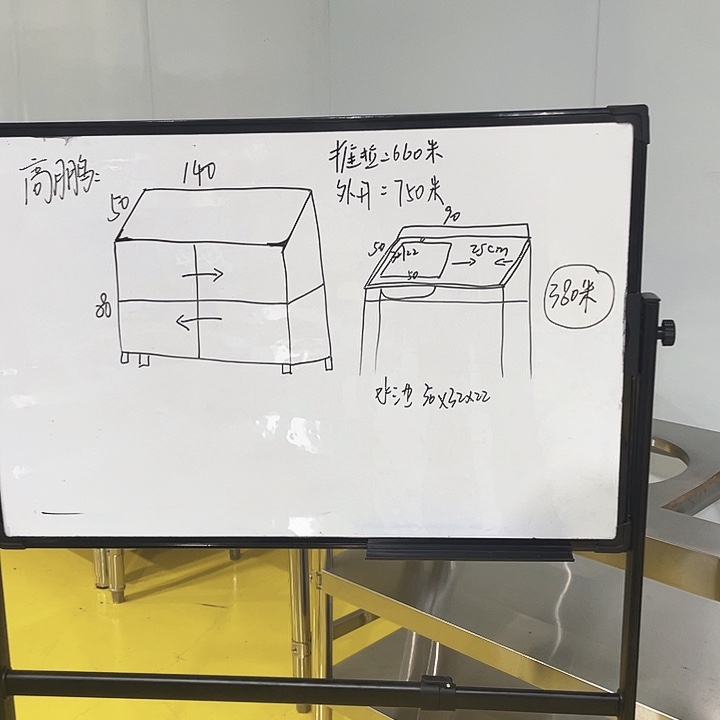 高鹏:
140
50
80
推拉=660米
外开=750米
90
50
32
22
50
25cm
380米
水池 50x32x22